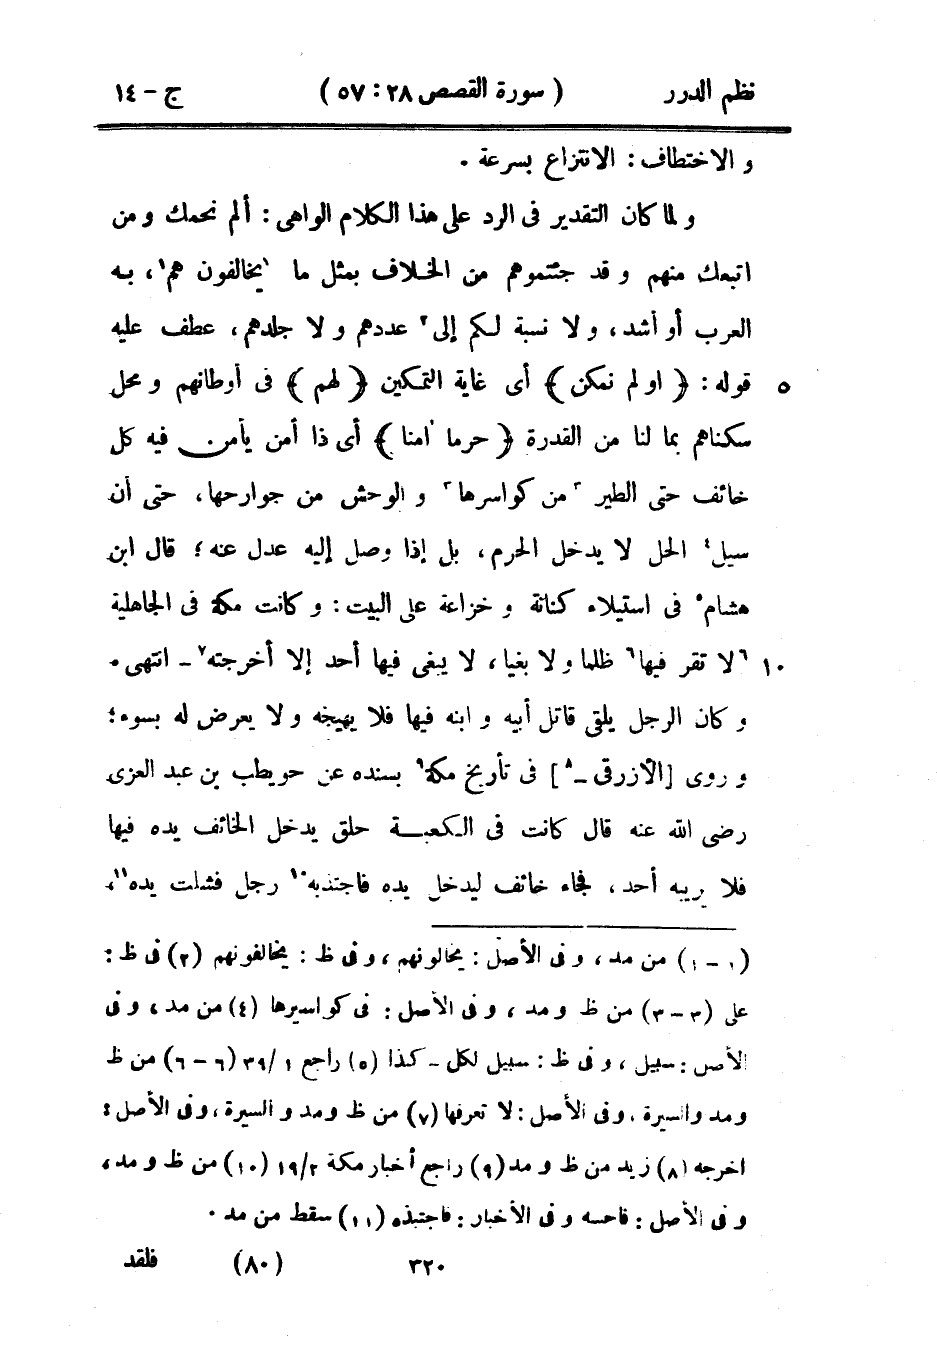 نظم الدرر ( سورة القصص ٢٨ : ٥٧ ) ج – ١٤
و الاختطاف : الانتزاع بسرعة .
و لما كان التقدير فى الرد على هذا الكلام الواهى : ألم نحمك و من
اتبعك منهم و قد جئتموهم من الخلاف بمثل ما ١يخالفون هم١، به
العرب أو أشد ، و لا نسبة لكم إلى٢ عددهم و لا جلدهم ، عطف عليه
٥ قوله : ﴿ او لم نمكن ﴾ أى غاية التمكين ﴿ لهم ﴾ فى أوطانهم و محل
سكناهم بما لنا من القدرة ﴿ حرما اٰمنا ﴾ أى ذا أمن يأمن فيه كل
خائف حتى الطير ٣من كواسرها٣ و الوحش من جوارحها ، حتى أن
سيل٤ الحل لا يدخل الحرم ، بل إذا وصل إليه عدل عنه ؛ قال ابن
هشام٥ فى استيلاء كنانة و خزاعة على البيت : و كانت مكة فى الجاهلية
١٠ ٦لا تقر فيها٦ ظلما و لا بغيا ، لا يبغى فيها أحد إلا أخرجته٧ ـ انتهى .
و كان الرجل يلقى قاتل أبيه و ابنه فيها فلا يهيجه و لا يعرض له بسوء ؛
و روى [ الأزرقى ـ٨ ] فى تأريخ مكة٩ بسنده عن حويطب بن عبد العزى
رضى الله عنه قال كانت فى الكعبة حلق يدخل الخائف يده فيها
فلا يريبه أحد ، فجاء خائف ليدخل يده فاجتذبه١٠ رجل فشلت يده١١،
(١ ـ ١) من مد ، و فى الأصل : يخالونهم ، و فى ظ : يخالفونهم (٢) فى ظ :
على (٣ – ٣) من ظ و مد ، و فى الأصل : فى كواسيرها (٤) من مد ، و فى
الأصل : سبيل ، و فى ظ : سبيل لكل ـ كذا (٥) راجع ١ /٣٩ (٦ – ٦) من ظ
و مد والسيرة ، و فى الأصل : لا تعرفها (٧) من ظ و مد و السيرة ، و فى الأصل :
اخرجه (٨) زيد من ظ و مد (٩) راجع أخبار مكة ٢/ ١٩ (١٠) من ظ و مد ،
و فى الأصل : فاحسه و فى الأخبار : فاجتبذه (١١) سقط من مد .
٣٢٠ (٨٠) فلقد